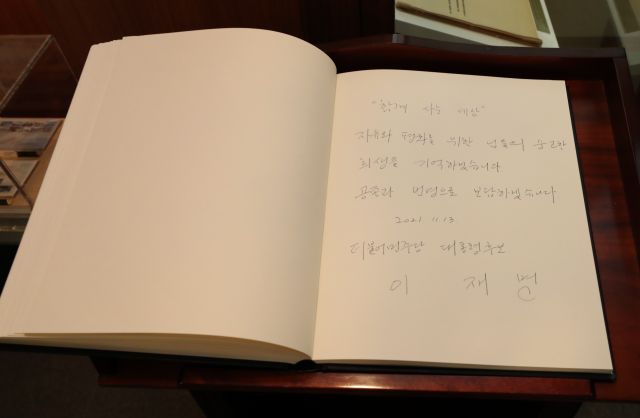 "함께 사는 세상"
자유와 평화를 위한 님들의 숭고한
희생을 기억하겠습니다
공존과 번영으로 보답하겠습니다
2021. 11. 13.
더불어민주당 대통령후보
이 재 명